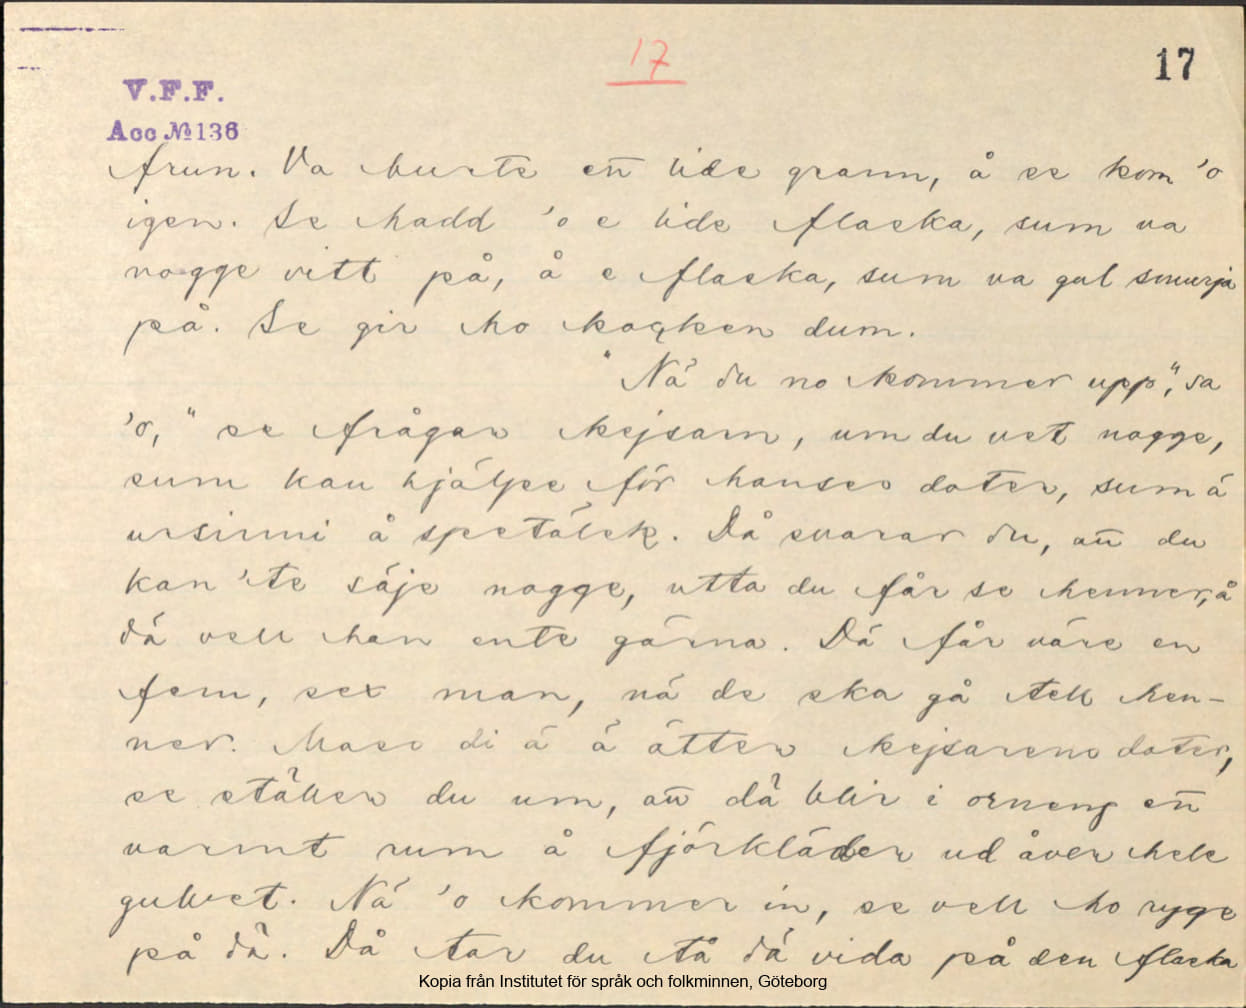 17
17
V.F.F.
Acc № 136
frun. Va burte en̄ lide grann, å se kom 'o
igen. Se hadd 'o e lide flaska, sum va
nogge vitt på, å e flaska, sum va gul smurja
på. Se gir ho kocken dum.
"Nä du no kommer upp", sa
'o, "se frågar kejsarn, um du vet nogge,
sum kan hjälpe för hanses doter, sum ä
ursinni å spetälsk. Då svarar du, an̄ du
kan 'te säje nogge, utta du får se henner, å
dä vell han ente gärna. Dä får väre en
fem, sex man, nä de ska gå tell hen-
ner. Mass di ä å ätter kejsarens doter,
se ställer du um, an̄ dä blir i orneng en̄
varmt rum å fjörkläder ud åver hele
gulvet. Nä 'o kommer in, se vell ho ryge
på dä. Då tar du tå dä vida på den flaska
Kopia från Institutet för språk och folkminnen, Göteborg